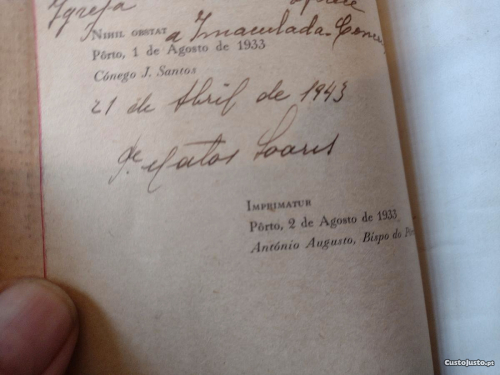 Igreja
NIHIL OBSTAT a Immaculada
Pôrto, 1 de Agosto de 1933
Cónego J. Santos
21 de Abril de 1943
Pe Matos Soares
IMPRIMATUR
Pôrto, 2 de Agosto de 1933
António Augusto, Bispo do
CustoJusto.pt